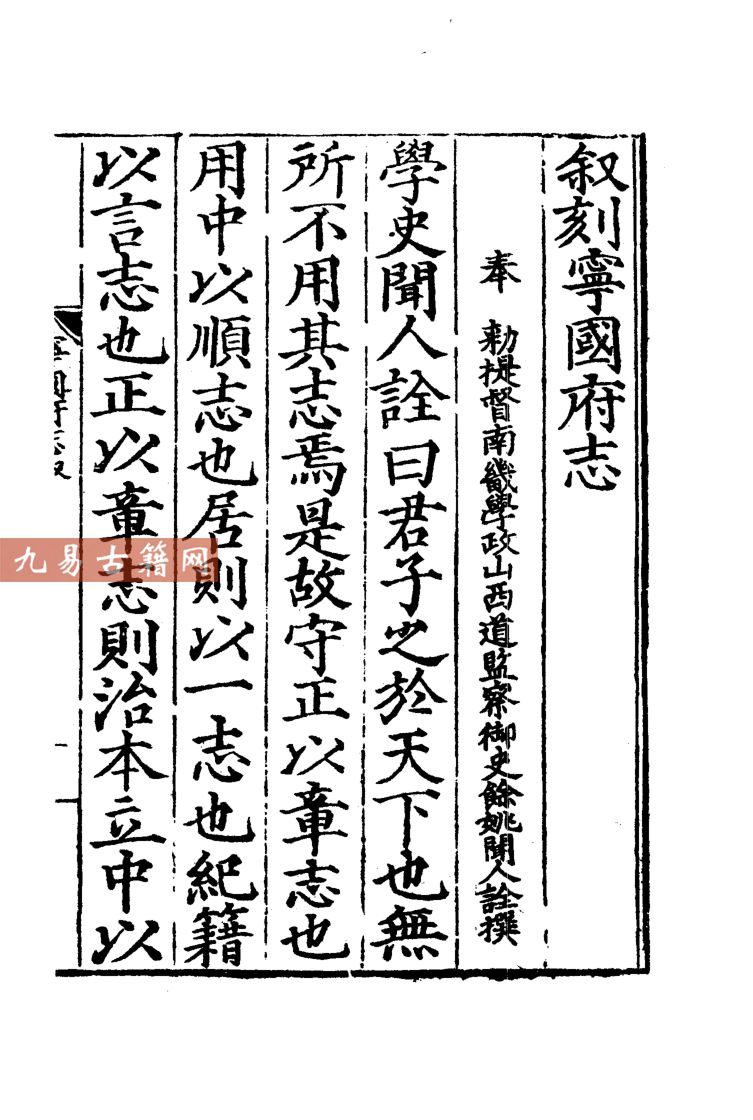 叙刻寧國府志
奉 勅提督南畿學政山西道監察御史餘姚聞人詮撰
學史聞人詮曰君子之於天下也無
所不用其志焉是故守正以章志也
用中以順志也居則以一志也紀籍
以言志也正以章志則治本立中以
九易古籍网